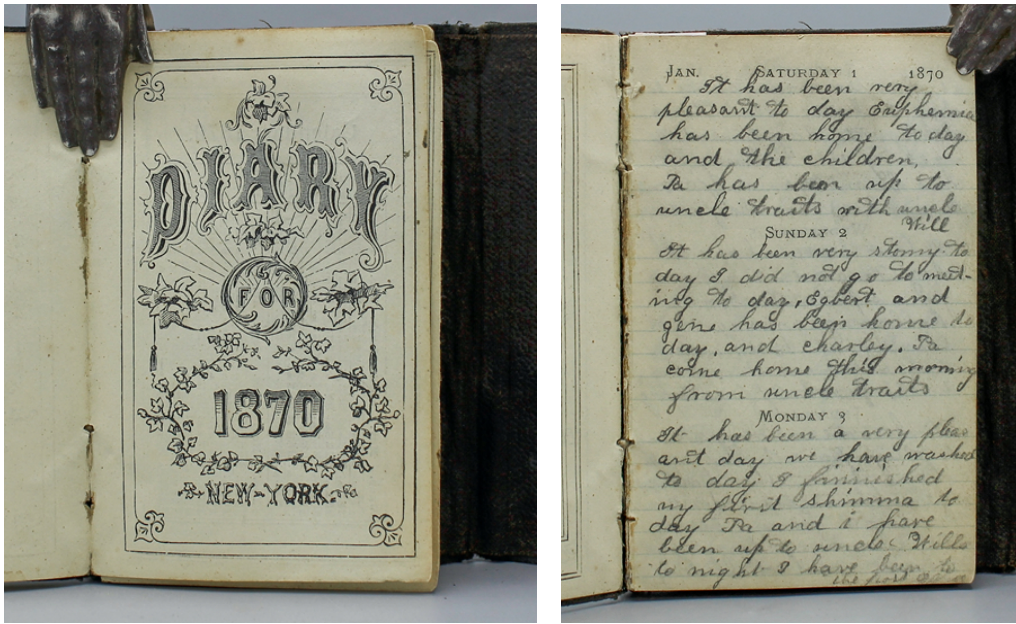 DIARY
FOR
1870
NEW-YORK
JAN. SATURDAY 1 1870
It has been very
pleasant to day Euphemia
has been home to day
and the children,
Pa has been up to
uncle traits with uncle
Will
SUNDAY 2
It has been very stomy to
day I did not go to meet-
ing to day, Egbert and
gene has been home to
day, and charley. Pa
come home this morning
from uncle traits
MONDAY 3
It has been a very pleas
ant day we have washed
to day I finnished
my first shimma to
day Pa and i have
been up to uncle Wills
to night I have been to
the post